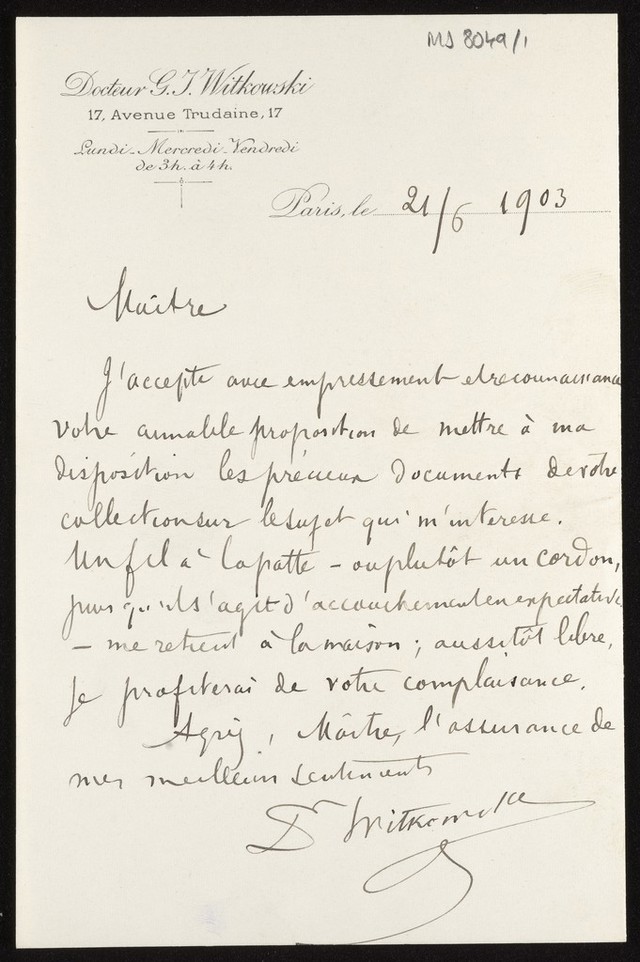 MS 8049/1
Docteur G. J. Witkowski
17, Avenue Trudaine, 17
Lundi - Mercredi - Vendredi
de 3h. à 4h.
Paris, le 21/6 1903
Maître
J'accepte avec empressement et reconnaissance
votre aimable proposition de mettre à ma
disposition les précieux documents de votre
collection sur le sujet qui m'intéresse.
Un fil à la patte - ou plutôt un cordon,
puis qu'il s'agit d'accouchement en expectative
- me retient à la maison ; aussitôt libre,
je profiterai de votre complaisance.
Agréez, Maître, l'assurance de
mes meilleurs sentiments
Dr Witkowski